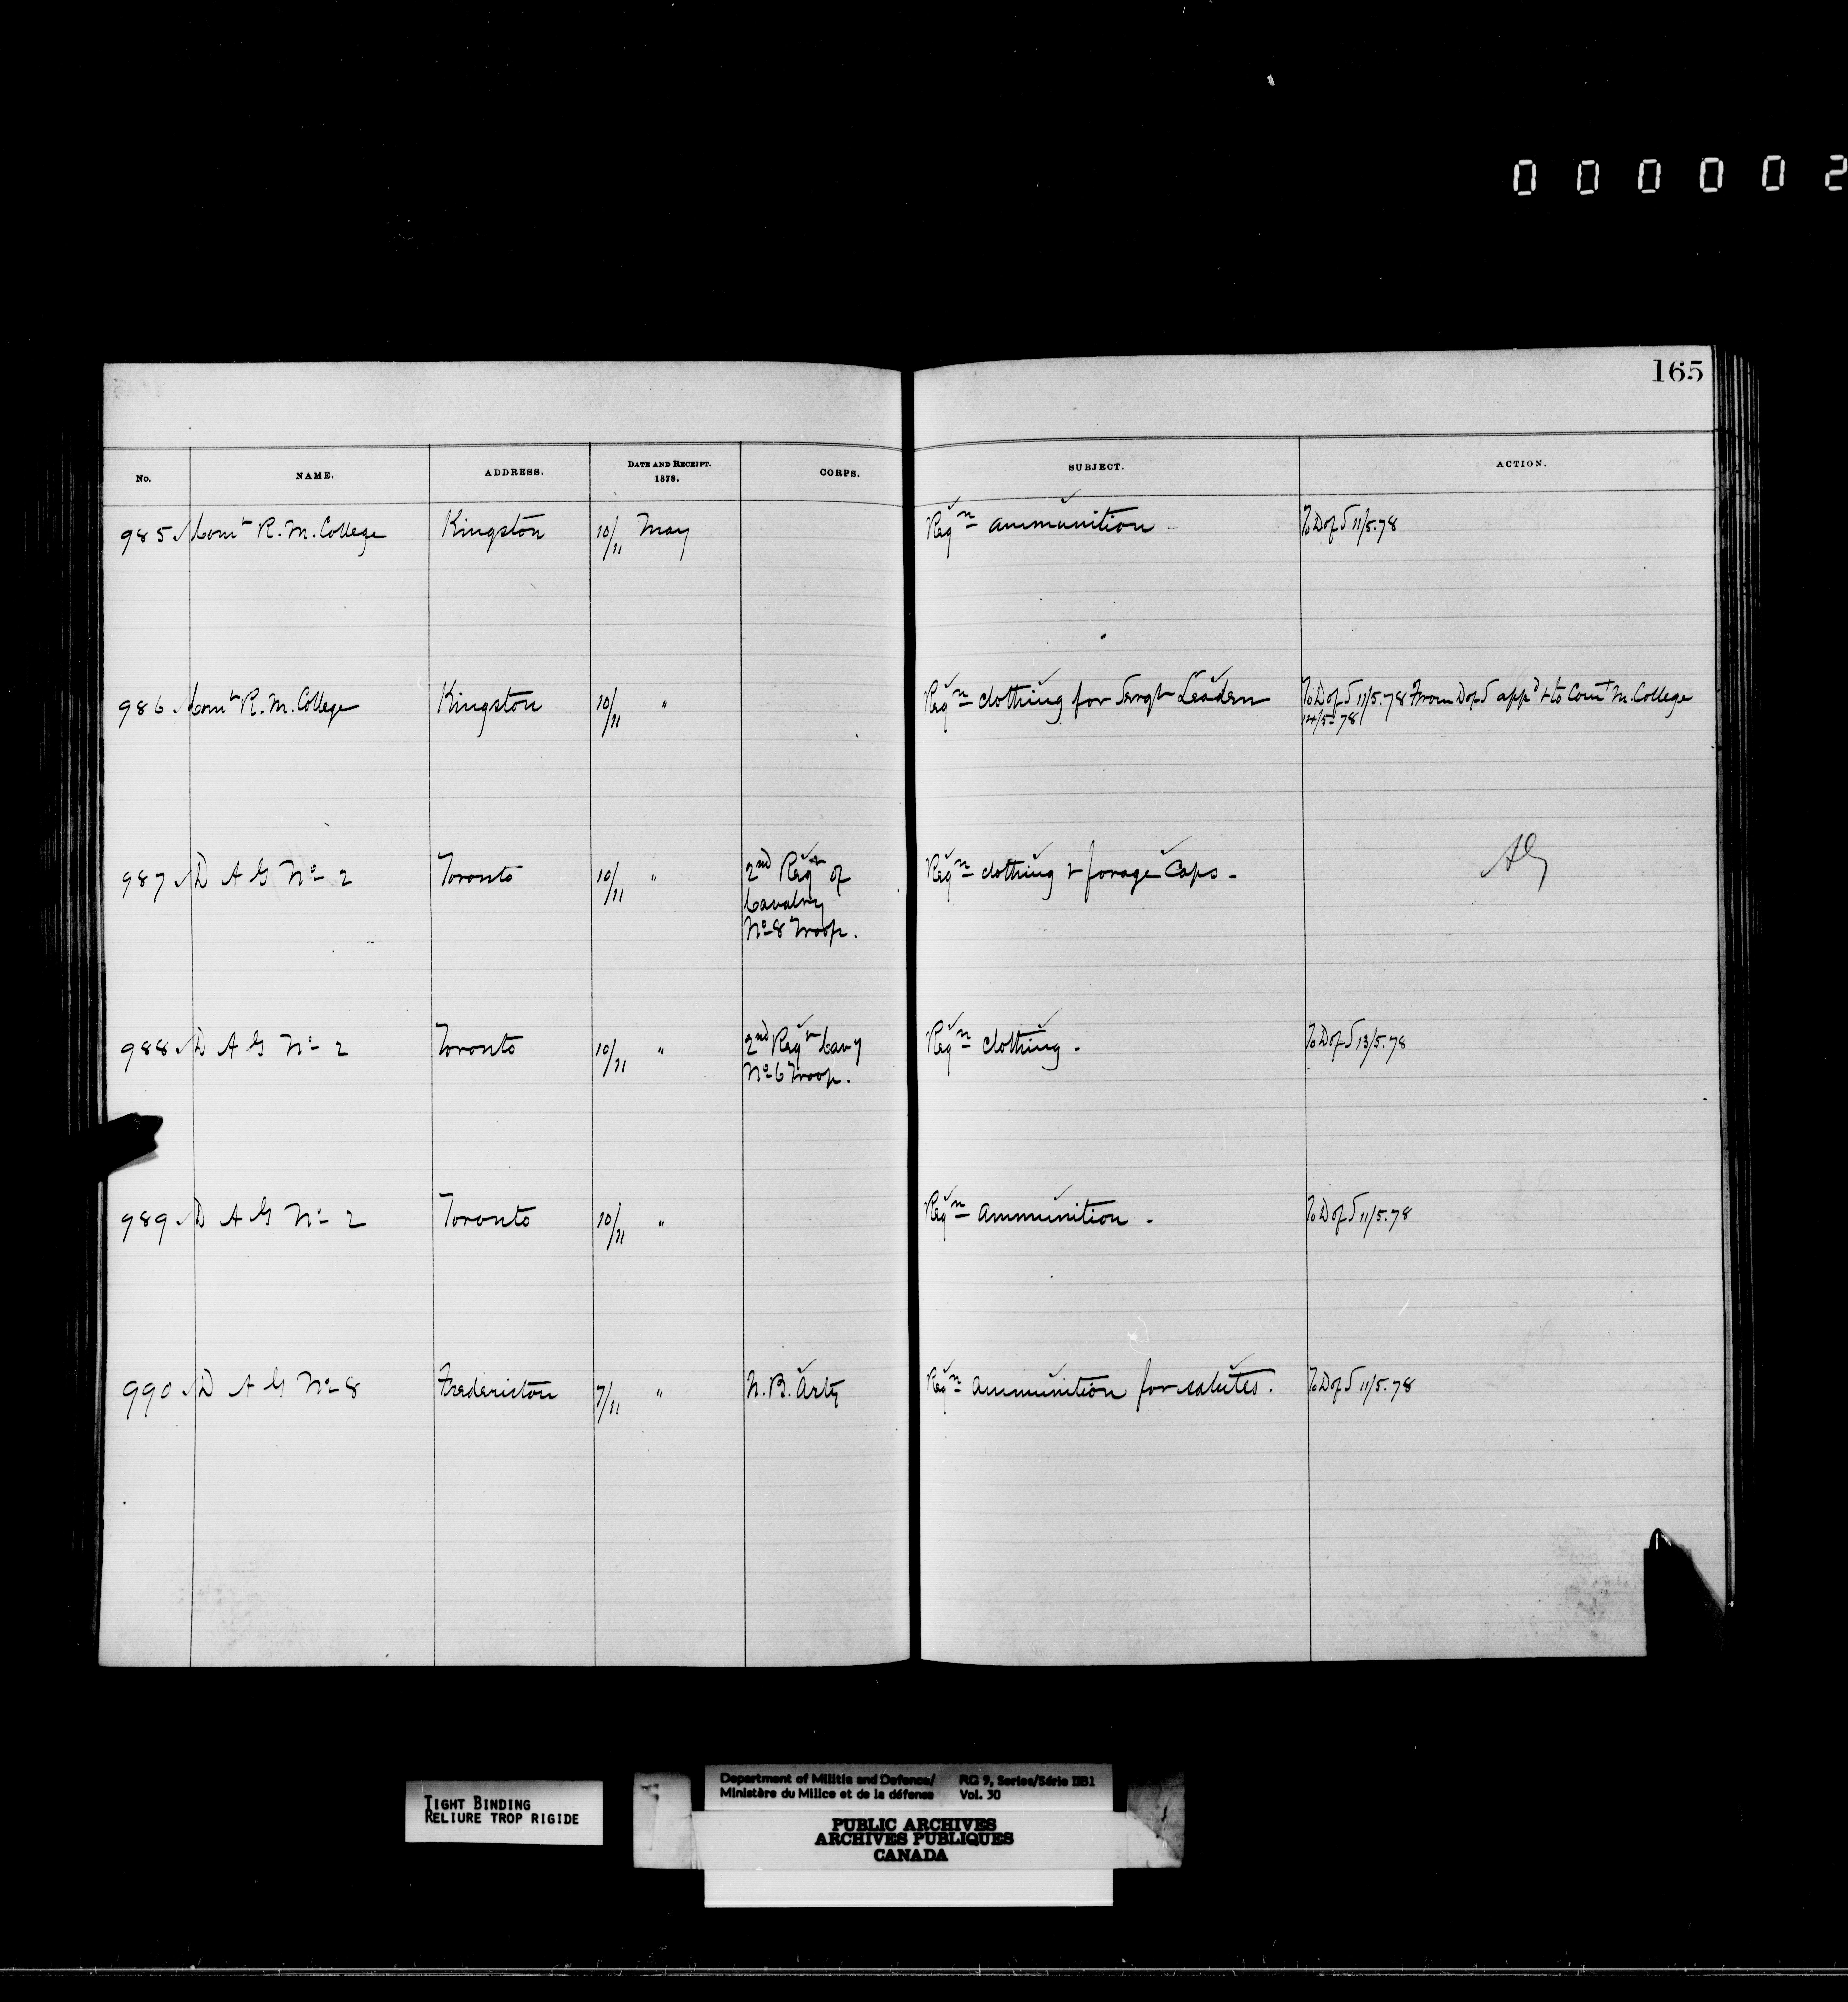 000002
165
No. NAME. ADDRESS. DATE AND RECEIPT. 1878. CORPS. SUBJECT. ACTION.
985 Comt R. M. College Kingston 10/11 May Reqn ammunition To D of S 11/5.78
986 Comt R. M. College Kingston 10/11 " Reqn clothing for Sergt Leadern To D of S 11/5.78 From D of S appd & to Comt M. College
14/5-78
987 D A G No 2 Toronto 10/11 " 2nd Regt of Reqn clothing & forage Caps - AG
Cavalry
No 8 Troop.
988 D A G No 2 Toronto 10/11 " 2nd Regt Cavy Reqn clothing - To D of S 13/5.78
No 6 Troop.
989 D A G No 2 Toronto 10/11 " Reqn ammunition - To D of S 11/5.78
990 D A G No 8 Fredericton 7/11 " N. B. Arty Reqn ammunition for salutes. To D of S 11/5.78
TIGHT BINDING
RELIURE TROP RIGIDE
Department of Militia and Defence/ RG 9, Series/Série IIB1
Ministère du Milice et de la défense Vol. 30
PUBLIC ARCHIVES
ARCHIVES PUBLIQUES
CANADA